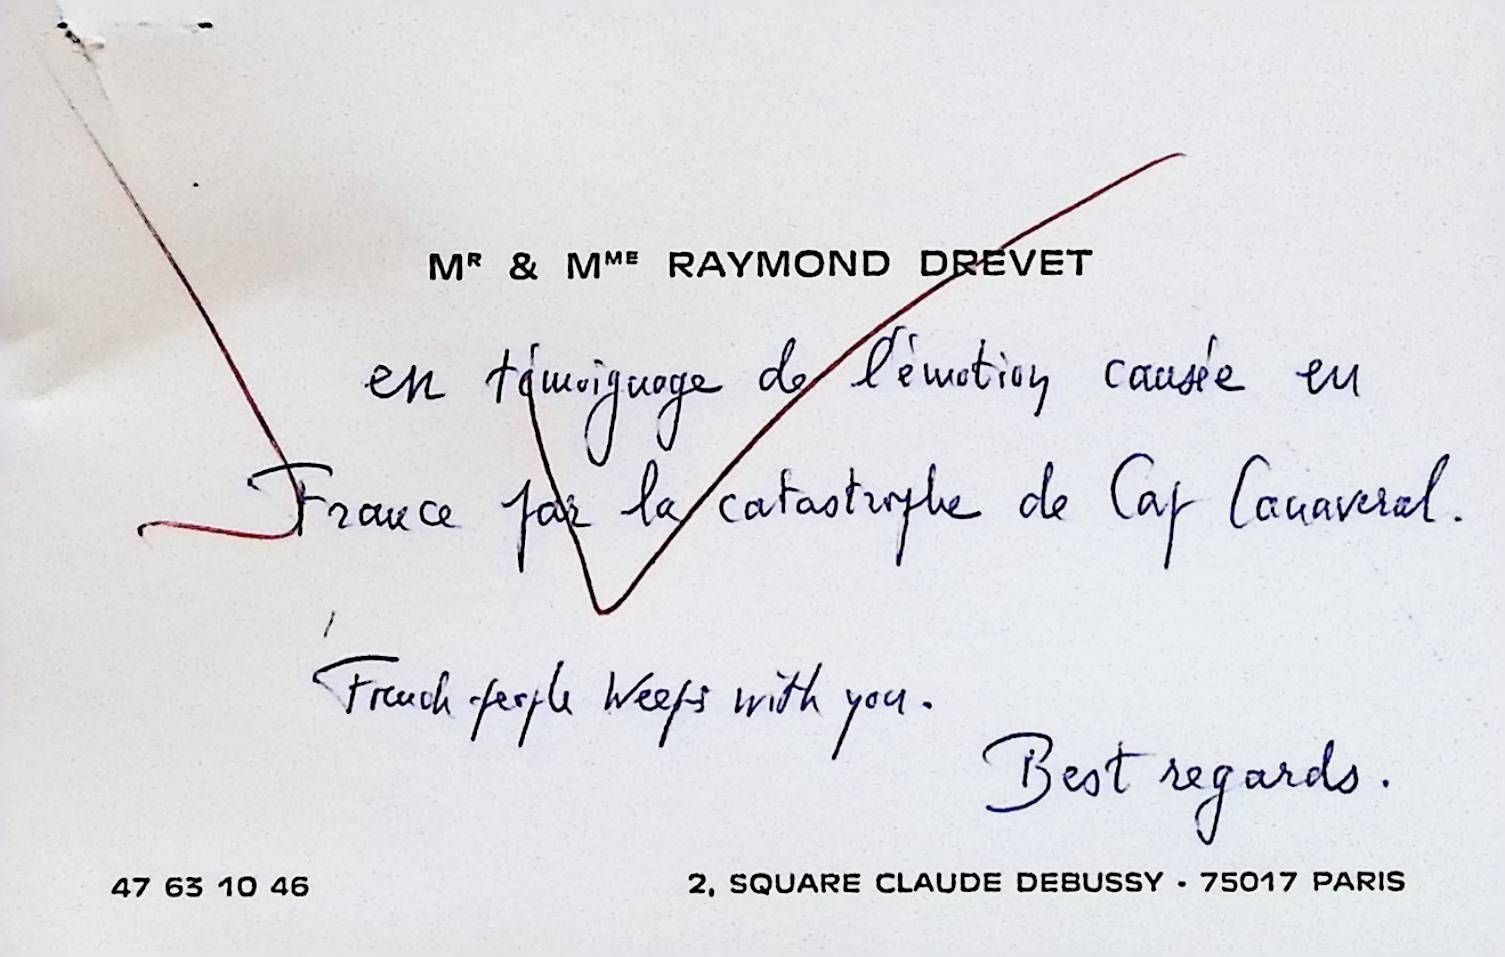 MR & MME RAYMOND DREVET
en témoignage de l'émotion causée en
France par la catastrophe de Cap Canaveral.
French people weeps with you.
Best regards.
47 63 10 46
2, SQUARE CLAUDE DEBUSSY - 75017 PARIS